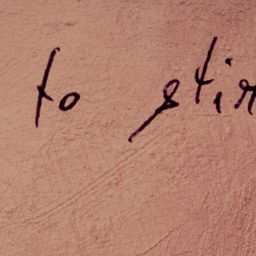 to stir